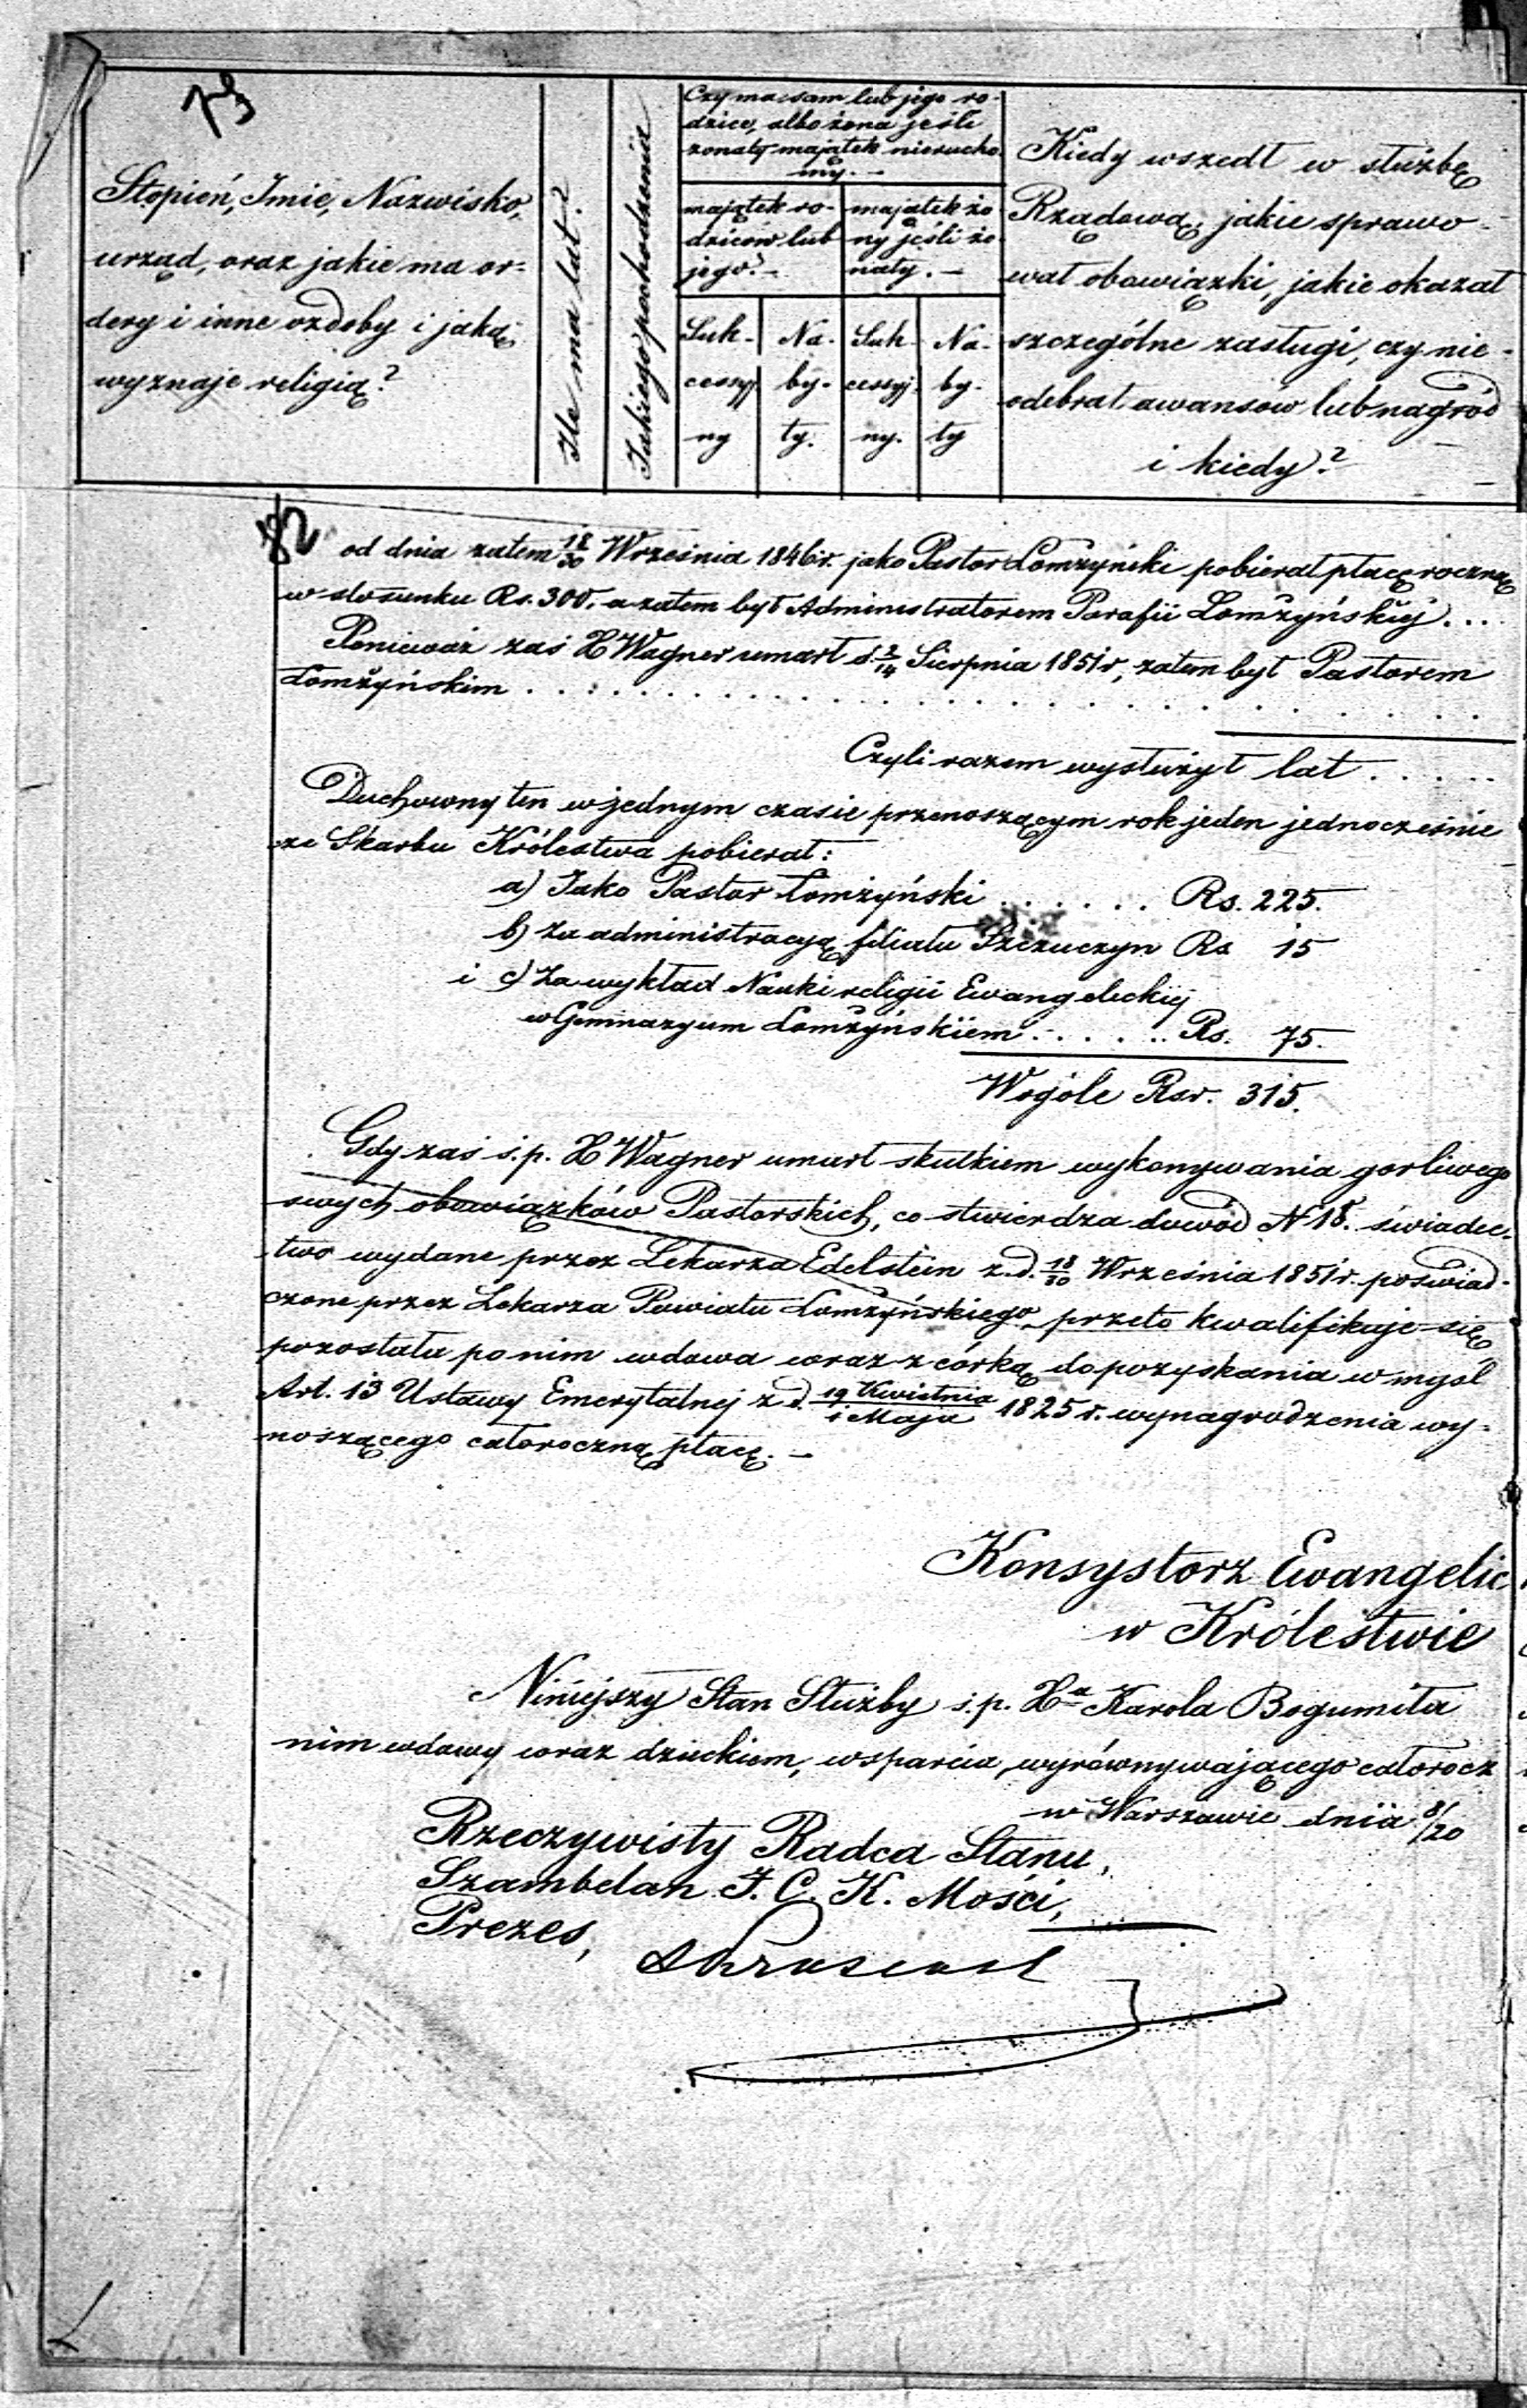 73
Stopień, Imie, Nazwisko,
urząd, oraz jakie ma or-
dery i inne ozdoby i jaką
wyznaje religią?
Ile ma lat?
Jakiego pochodzenia
Czy ma sam lub jego ro-
dzice, albo żona jeśli
żonaty majątek nierucho
my. —
majątek ro-
dziców lub
jego? —
majątek żo
ny jeśli żo
naty. —
Suk-
cessyj
ny
Na-
by-
ty.
Suk-
cessyj.
ny.
Na-
by-
ty
Kiedy wszedł w służbę
Rządową, jakie sprawo-
wał obowiązki, jakie okazał
szczególne zasługi, czy nie-
odebrał awansów lub nagród
i kiedy?
82
od dnia zatem 18/30 Września 1846 r. jako Pastor Łomżyński pobierał płacę roczną
w stosunku Rs. 300. a zatem był Administratorem Parafii Łomżyńskiéj ...
Ponieważ zaś X Wagner umarł d. 2/14 Sierpnia 1851 r, zatem był Pastorem
Łomżyńskim . . . . . . . . . . . . . . . . . . . .
Czyli razem wysłużył lat . . . . .
Duchowny ten w jednym czasie przenoszącym rok jeden jednocześnie
ze Skarbu Królestwa pobierał:
a) Jako Pastor Łomżyński . . . . . . Rs. 225.
b) Za administracyą filiału Szczuczyn Rs 15
i c) Za wykład Nauki religii Ewangelickiéj
w Gimnazyum Łomżyńskiem . . . . . Rs. 75.
Wogóle Rsr. 315.
Gdy zaś ś.p. X Wagner umarł skutkiem wykonywania gorliwego
swych obowiązków Pastorskich, co stwierdza dowód N 18. świadec-
two wydane przez Lekarza Edelstein z d. 18/30 Września 1851 r. poświad-
czone przez Lekarza Powiatu Łomżyńskiego, przeto kwalifikuje się
pozostała po nim wdowa wraz z córką do pozyskania w myśl
Art. 13 Ustawy Emerytalnej z d. 19 Kwietnia/1 Maja 1825 r. wynagrodzenia wy-
noszącego całoroczną płacę. —
Konsystorz Ewangelic
w Królestwie
Niniejszy Stan Służby ś.p. Xa Karola Bogumiła
nim wdowy wraz dzieckiem, wsparcia, wyrównywającego całorocz
w Warszawie dnia 8/20
Rzeczywisty Radca Stanu,
Szambelan J. C. K. Mości,
Prezes,